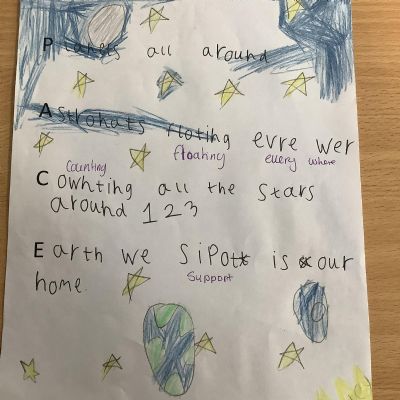 Planets all around
Astronats floting evre wer
floating every where
Counting
Cowhting all the stars
around 123
Earth we sipott is our
Support
home.